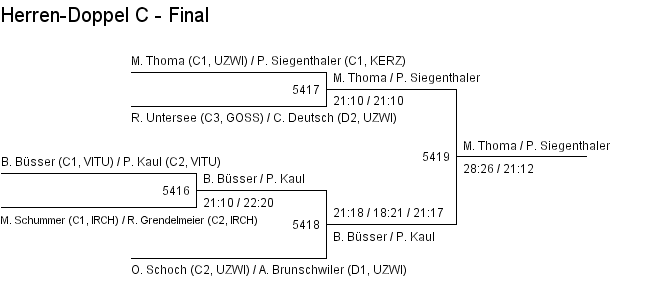 Herren-Doppel C - Final
M. Thoma (C1, UZWI) / P. Siegenthaler (C1, KERZ)
M. Thoma / P. Siegenthaler
5417
21:10 / 21:10
R. Untersee (C3, GOSS) / C. Deutsch (D2, UZWI)
M. Thoma / P. Siegenthaler
5419
28:26 / 21:12
B. Büsser (C1, VITU) / P. Kaul (C2, VITU)
B. Büsser / P. Kaul
5416
21:10 / 22:20
M. Schummer (C1, IRCH) / R. Grendelmeier (C2, IRCH)
21:18 / 18:21 / 21:17
5418
B. Büsser / P. Kaul
O. Schoch (C2, UZWI) / A. Brunschwiler (D1, UZWI)